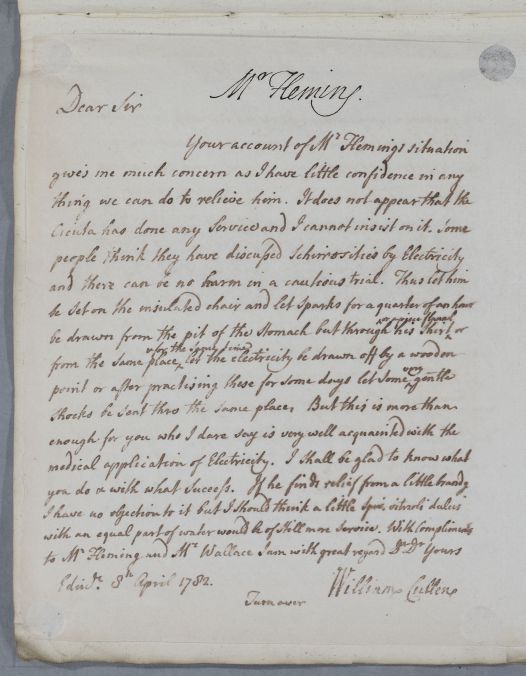 Mr Fleming.
Dear Sir
Your account of Mr Flemings situation
gives me much concern as I have little confidence in any
thing we can do to relieve him. It does not appear that the
Cicuta has done any Service and I cannot insist on it. Some
people think they have discussed Schirrosities by Electricity
and there can be no harm in a cautious trial. Thus let him
be set on the insulated chair and let sparks for a quarter of an hour
be drawn from the pit of the Stomach but through his Shirt or
from the same place let the electricity be drawn off by a wooden
point or after practising these for some days let some very gentle
shocks be sent thro the same place. But this is more than
enough for you who I dare say is very well acquainted with the
medical application of Electricity. I shall be glad to know what
you do & with what Success. If he finds relief from a little brandy
I have no objection to it but I should think a little Spir. vitrioli dulcis
with an equal part of water would be of still more Service. With Compliments
to Mr Fleming and Mr Wallace I am with great regard Dr Dr Yours
Edinr. 8th April 1782. William Cullen
Turn over